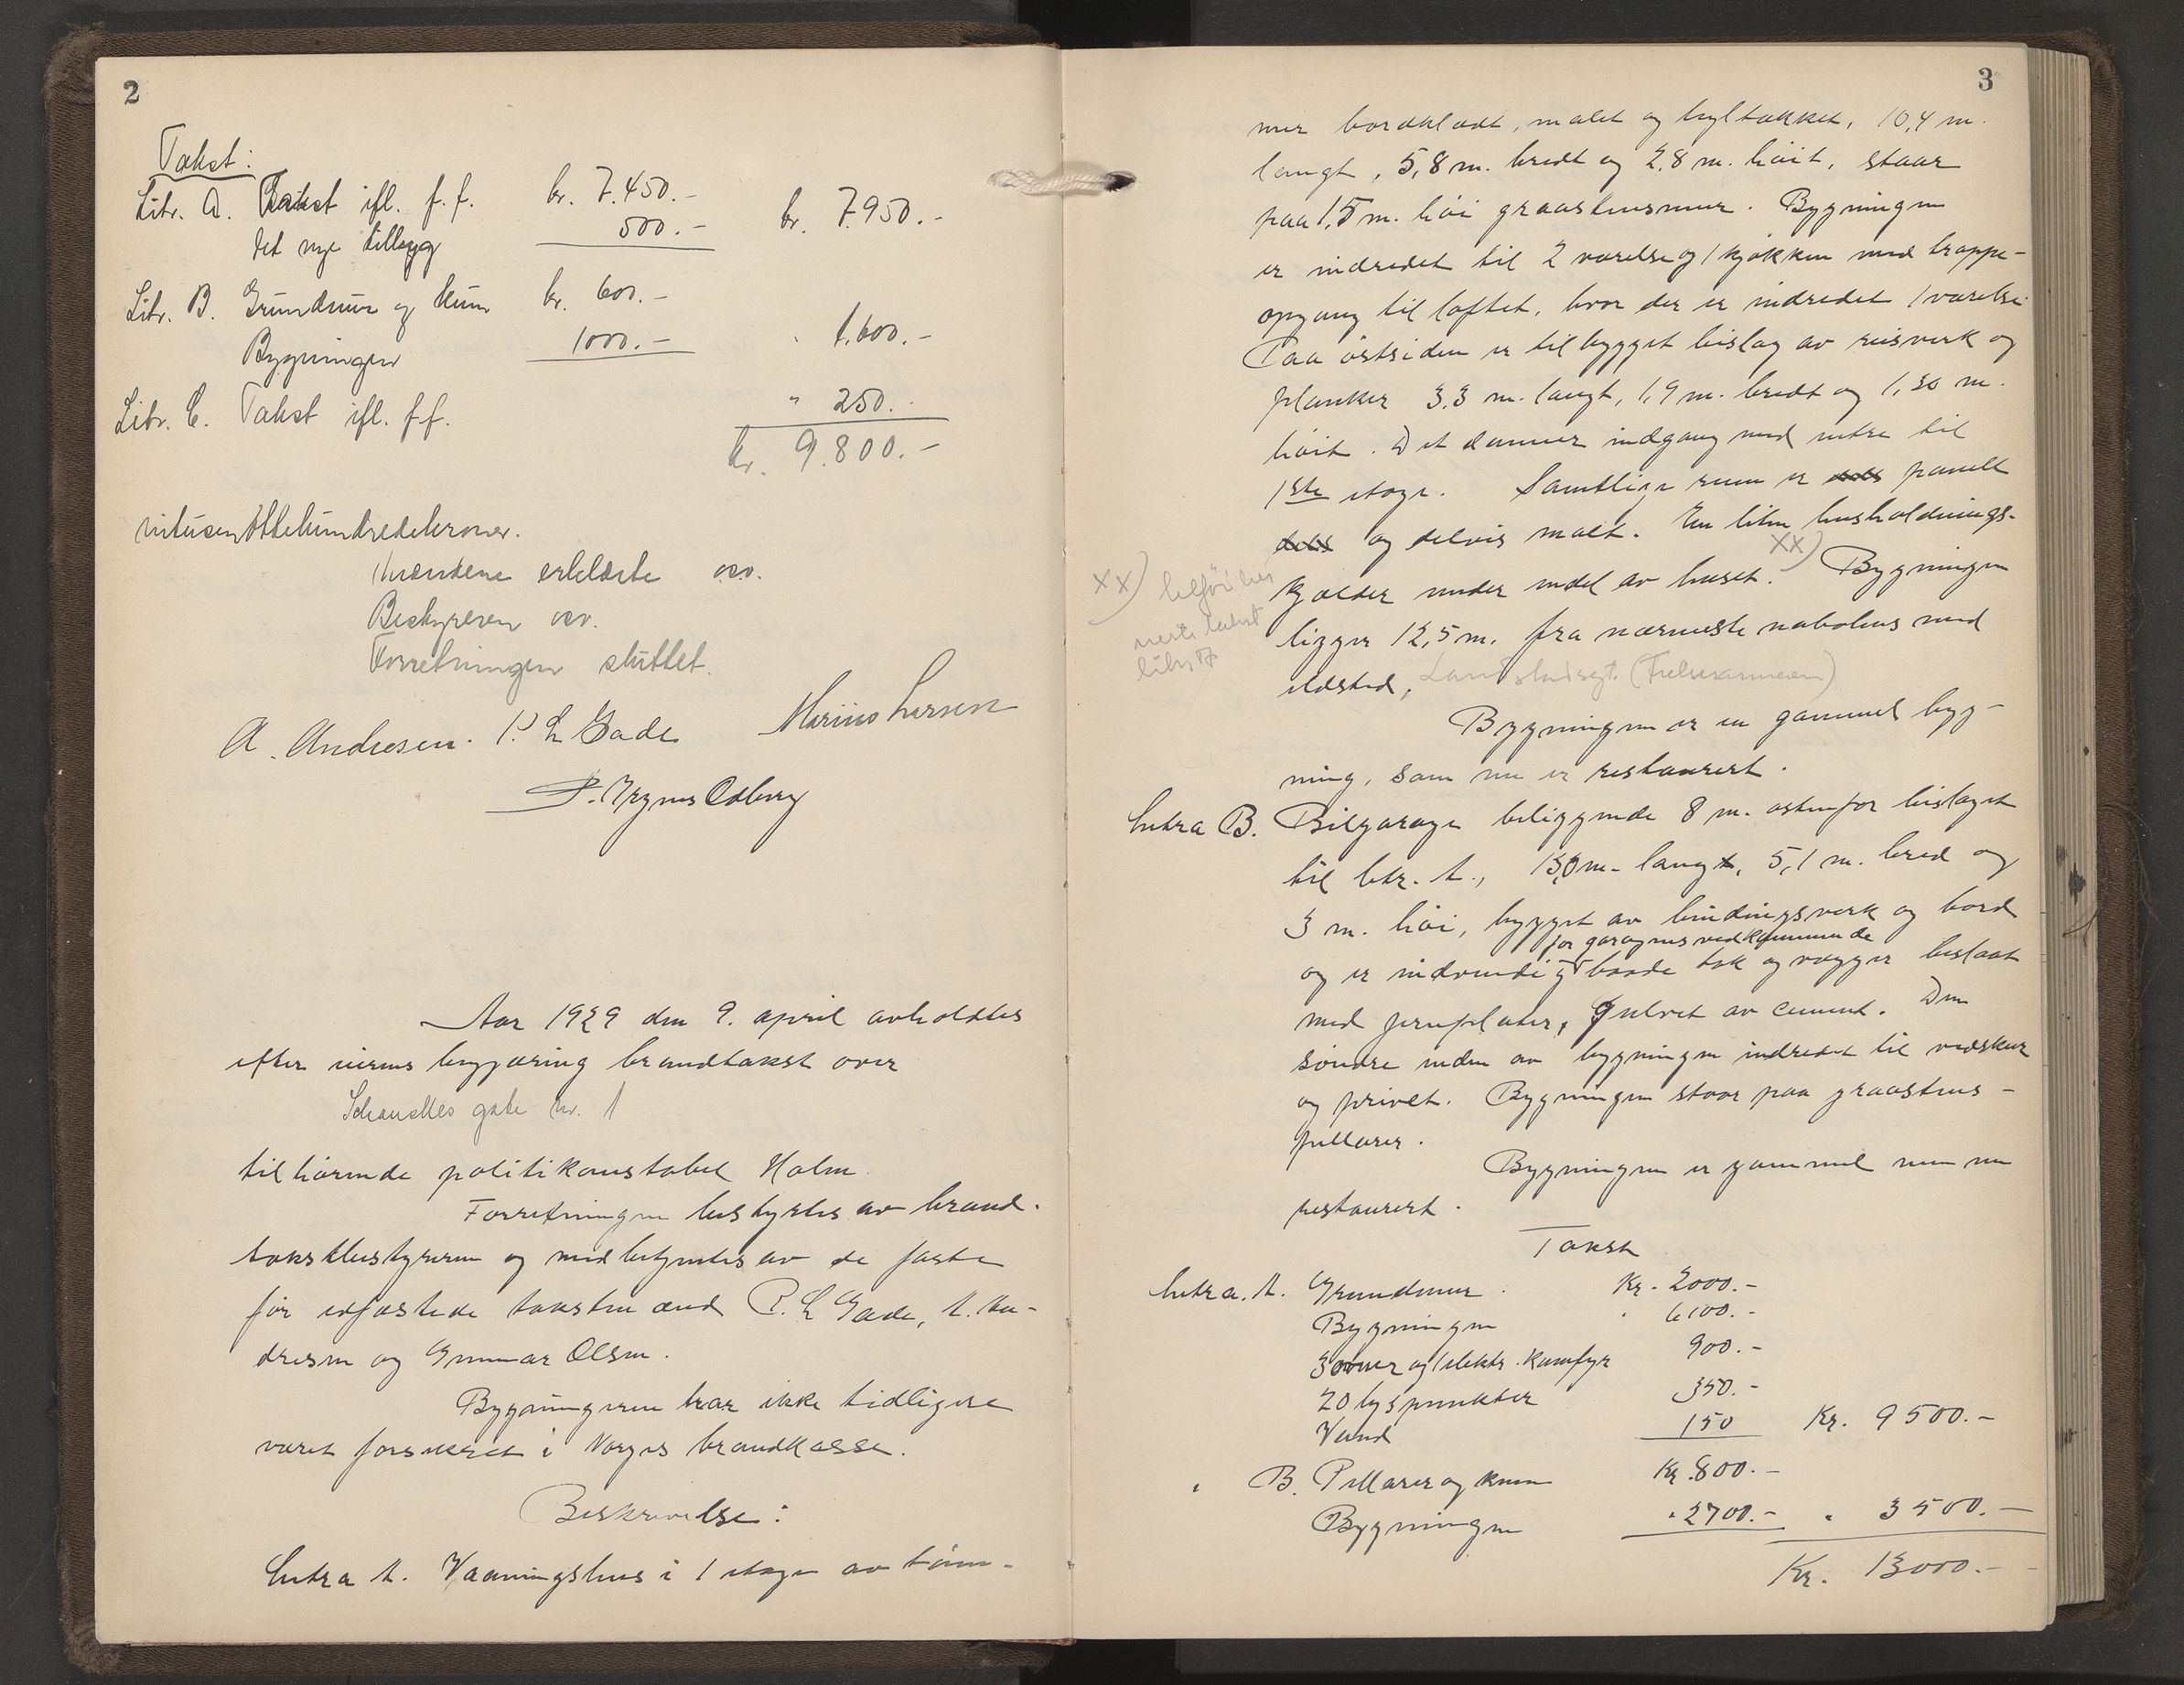 2
Takst:
Litr. A. Takst ifl. f.f. kr. 7.450.-
det nye tillegg 500.- kr. 7.950.-
Litr. B. Grundmur og kum kr. 600.-
Bygningen 1000.- " 1.600.-
Litr. C. Takst ifl. f.f. " 250.-
kr. 9.800.-
nitusenottehundredekroner.
Mændene erklærte osv.
Bestyreren osv.
Forretningen sluttet.
A. Andresen. P. L. Gade Marius Larsen
Aar 1929 den 9. april avholdtes
efter eierens begjæring brandtakst over
gate nr. 1
tilhørende politikonstabel Holm.
Forretningen bestyrtes av brand-
takstbestyreren og medbetjentes av de faste
før edfæstede takstmænd P. L Gade, A. An-
dresen og Gunnar Olsen.
Bygningerne har ikke tidligere
været forsikret i Norges brandkasse.
Beskrivelse:
Litra A. Vaaningshus i 1 etage av tøm-
3
mer bordklædt, malet og hyltækket, 10,4 m.
langt, 5,8 m. bredt og 2,8 m. høit, staar
paa 1,5 m. høi graastensmur. Bygningen
er indredet til 2 værelse og 1 kjøkken med trappe-
opgang til loftet, hvor der er indredet 1 værelse.
Paa østsiden er tilbygget bislag av reisverk og
planker 3,3 m. langt, 1,9 m. bredt og 1,30 m.
høit. Det danner indgang med entre til
1ste etage. Samtlige rum er panelt
og delvis malt. En liten husholdnings-
kjælder under endel av huset. xx) Bygningen
xx)
ligger 12,5 m. fra nærmeste nabohus med
ildsted, (Frelsesarmeen)
Bygningen er en gammel byg-
ning, som nu er restaurert.
Litra B. Bilgarage beliggende 8 m. østenfor bislaget
til litr. A., 13,0 m. langt, 5,1 m. bred og
3 m. høi, bygget av bindingsverk og bord
for garagens vedkommende
og er indvendig baade tak og vægger beslaat
med jernplater, gulvet av cement. Den
søndre enden av bygningen indredet til vedskur
og privet. Bygningen staar paa graastens-
pillarer.
Bygningen er gammel men nu
restaurert.
Takst
Litra. A. Grundmur Kr. 2000.-
Bygningen " 6100.-
3 ovner og 1 elektr. komfyr 900.-
20 lyspunkter 350.-
Vand 150 Kr. 9500.-
" B. Pillarer og kum Kr. 800.-
Bygningen " 2700.- " 3500.-
Kr. 13000.-